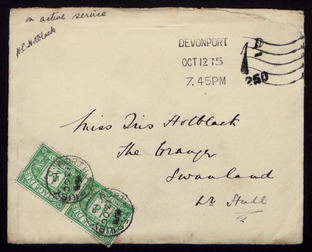 on active service
DEVONPORT
OCT 12 15
7.45PM
1D
250
Miss Iris Holblack
The Grange
Swanland
Nr Hull